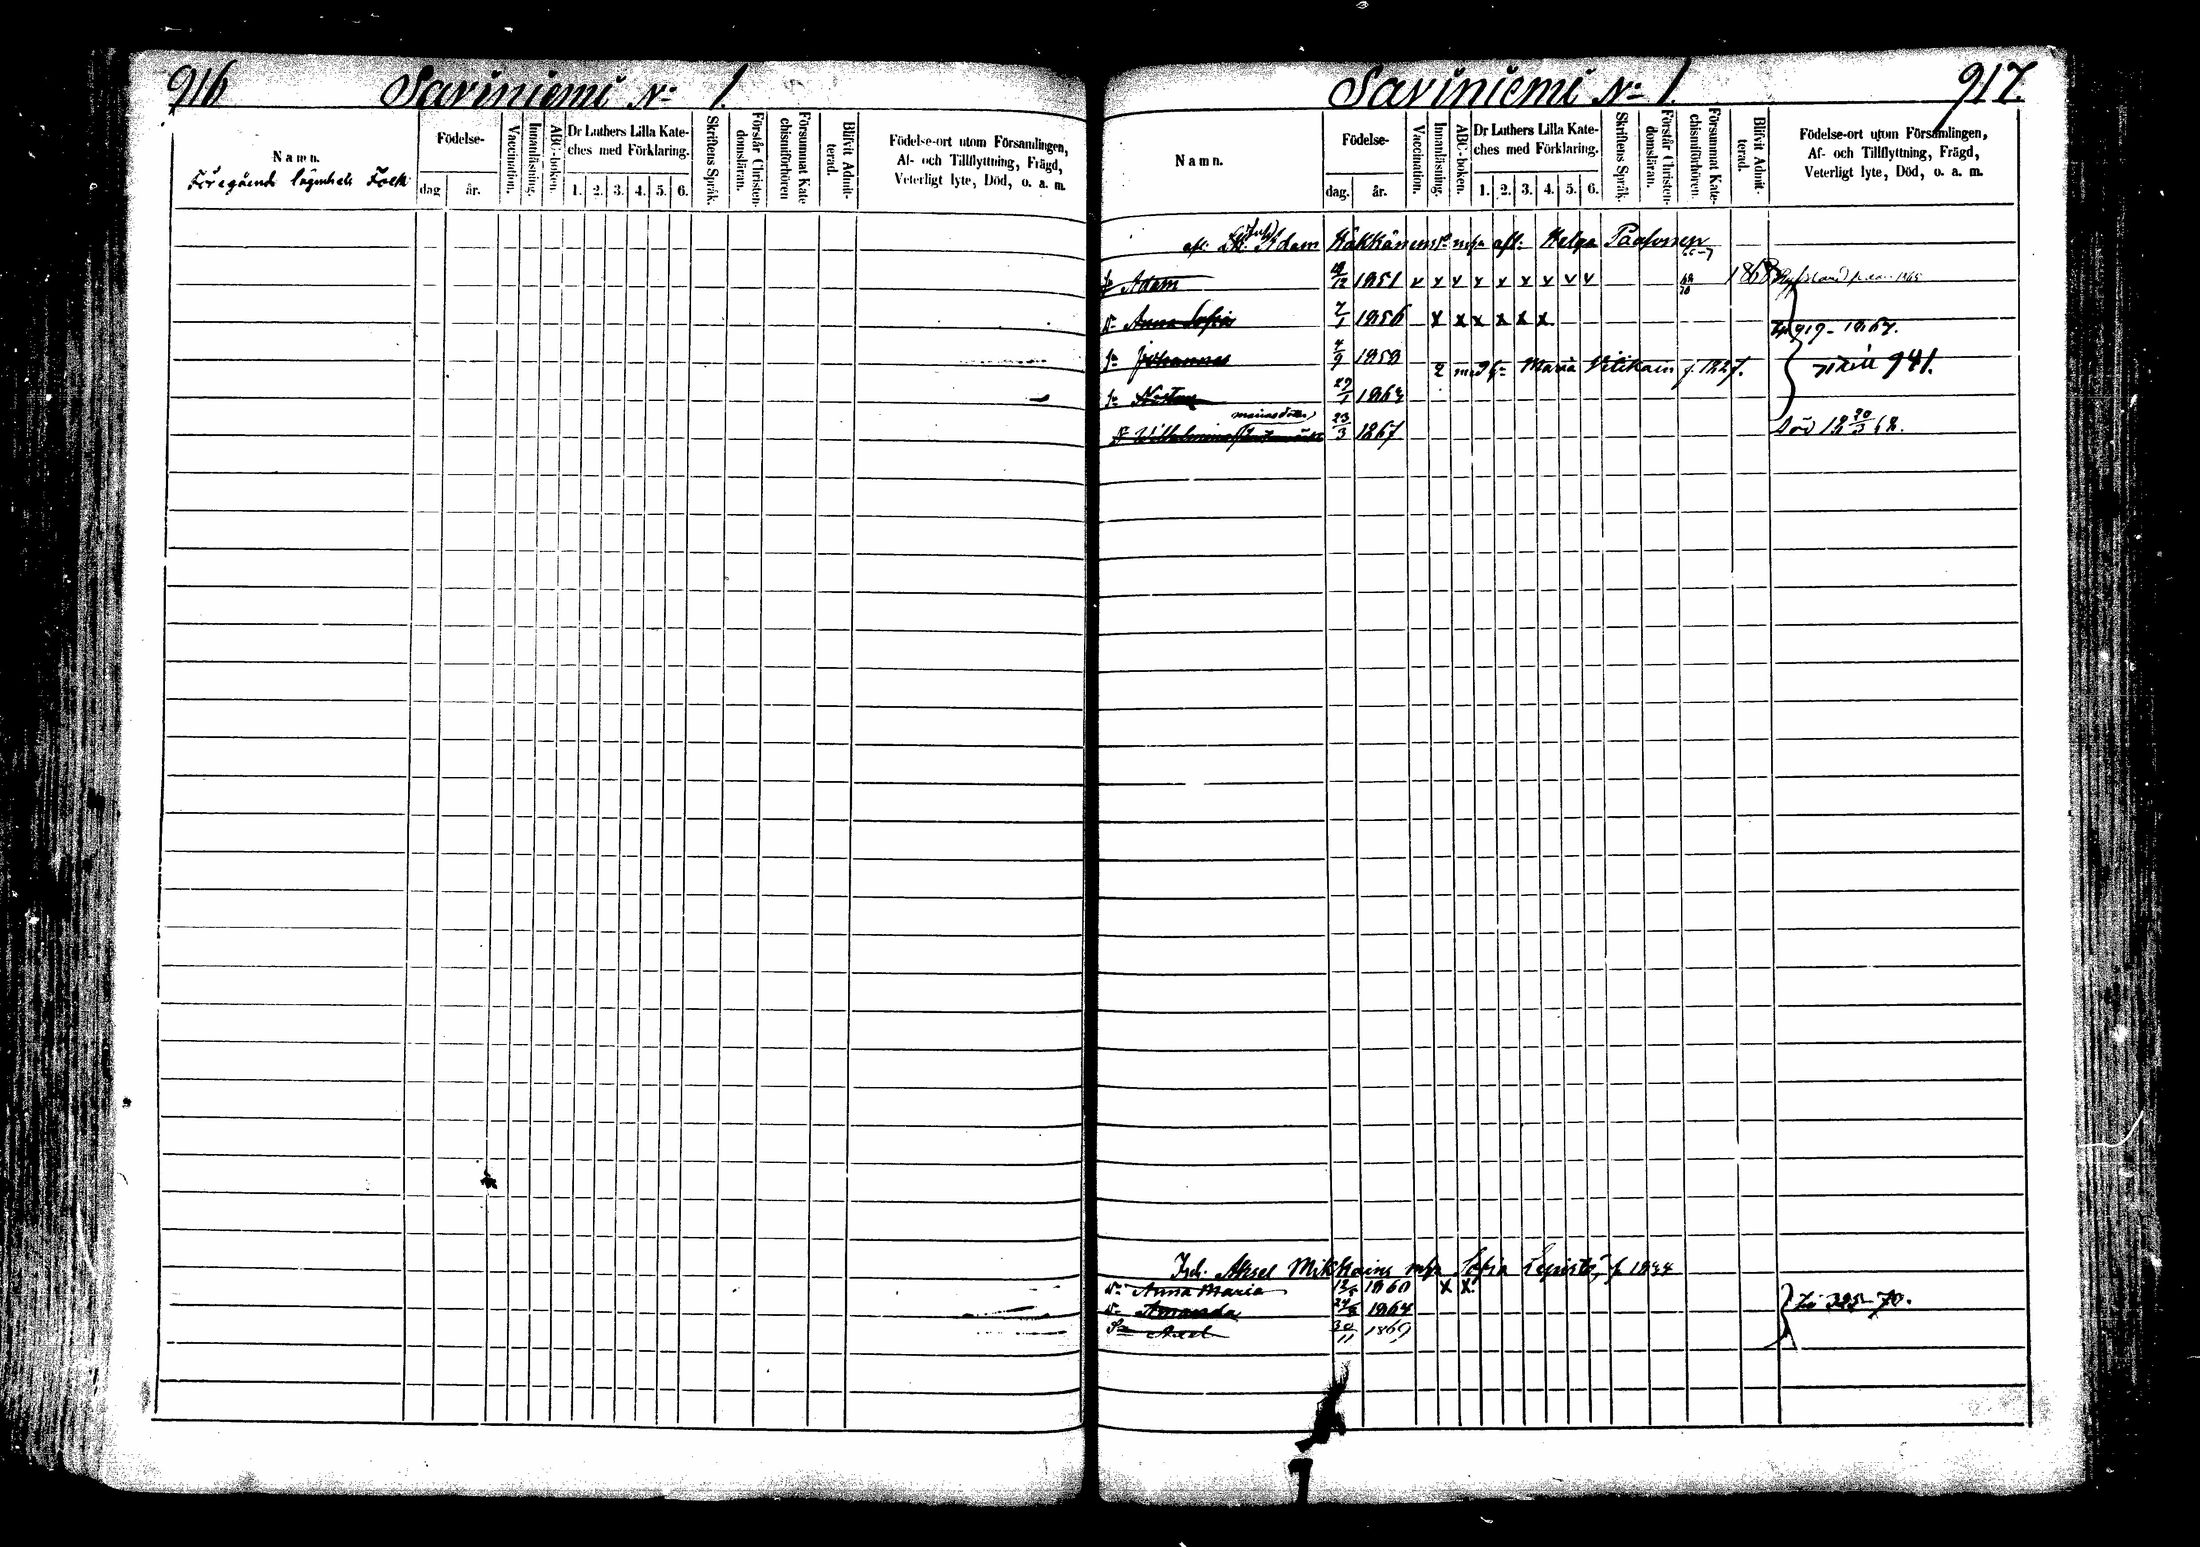 916 Saviniemi No 1.
Namn.
Föregående lägenhets Folk
Födelse-
dag
år.
Vaccination.
Innanläsning.
ABC-boken.
Dr Luthers Lilla Kate-
ches med Förklaring.
1. 2. 3. 4. 5. 6.
Skriftens Språk.
Förstår Christen-
domsläran.
Försummat Kate
chismiförhören
Blifvit Admit-
terad.
Födelse-ort utom Församlingen,
Af- och Tillflyttning, Frägd,
Veterligt lyte, Död, o. a. m.
Saviniemi No 1. 917.
Namn.
Födelse-
dag.
år.
Vaccination.
Innanläsning.
ABC-boken.
Dr Luthers Lilla Kate-
ches med Förklaring.
1. 2. 3. 4. 5. 6.
Skriftens Språk.
Förstår Christen-
domsläran.
Försummat Kate-
chismiförhören.
Blifvit Admit-
terad.
Födelse-ort utom Församlingen,
Af- och Tillflyttning, Frägd,
Veterligt lyte, Död, o. a. m.
Adam Häkkänens Helga Paasonen
Adam 12 1851 v v v v v v v v v 1868
Dr Anna Sofia 7/1 1856 x x x x x x 919 - 1867.
Sn Johannes 4/9 1859 2 med Maria Vitikain f. 1227. 941.
Sn 29/1 1863
Dr Wilhelmina 23/3 1867 Död 18 20/3 68.
Aksel Mikkains Sofia Lepistö, f. 1844
Dr Anna Maria 1860 x x
Dr Amanda 24/8 1864 325 - 70.
Sn Axel 30/11 1869